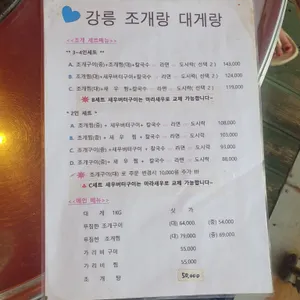 강릉 조개랑 대게랑
<조개 세트메뉴>
** 3~4인세트 **
A. 조개구이(중)+조개찜(대)+칼국수 - 라면 - 도시락( 선택 2 ) 143,000
B. 조개찜(대) + 새우버터구이+칼국수 - 라면 - 도시락( 선택 2 ) 124,000
C. 조개찜(대)+ 새 우 찜 + 칼국수 - 라면 - 도시락( 선택 2 ) 119,000
B세트 새우버터구이는 머리새우로 교체 가능합니다~
** 2인 세트 **
A. 조개찜(중) +새우버터구이+ 칼국수 - 라면 - 도시락 108,000
B. 조개찜(중) + 새 우 찜 + 칼국수 - 라면 - 도시락
C. 조개구이(중)+새우버터구이+ 칼국수 - 라면 - 도시락
D. 조개구이(중)+ 새 우 찜 + 칼국수 - 라면 - 도시락
조개구이(대) 로 주문 변경시 10,000원 추가
C세트 새우버터구이는 머리새우로 교체 가능합니다~
<메인 메뉴>
대 게 1KG 싯 가
푸짐한 조개구이 (대) 64,000 (중) 54,000
푸짐한 조개찜 (대) 79,000 (중) 69,000
가 리 비 구 이 55,000
가 리 비 찜 55,000
조 개 탕